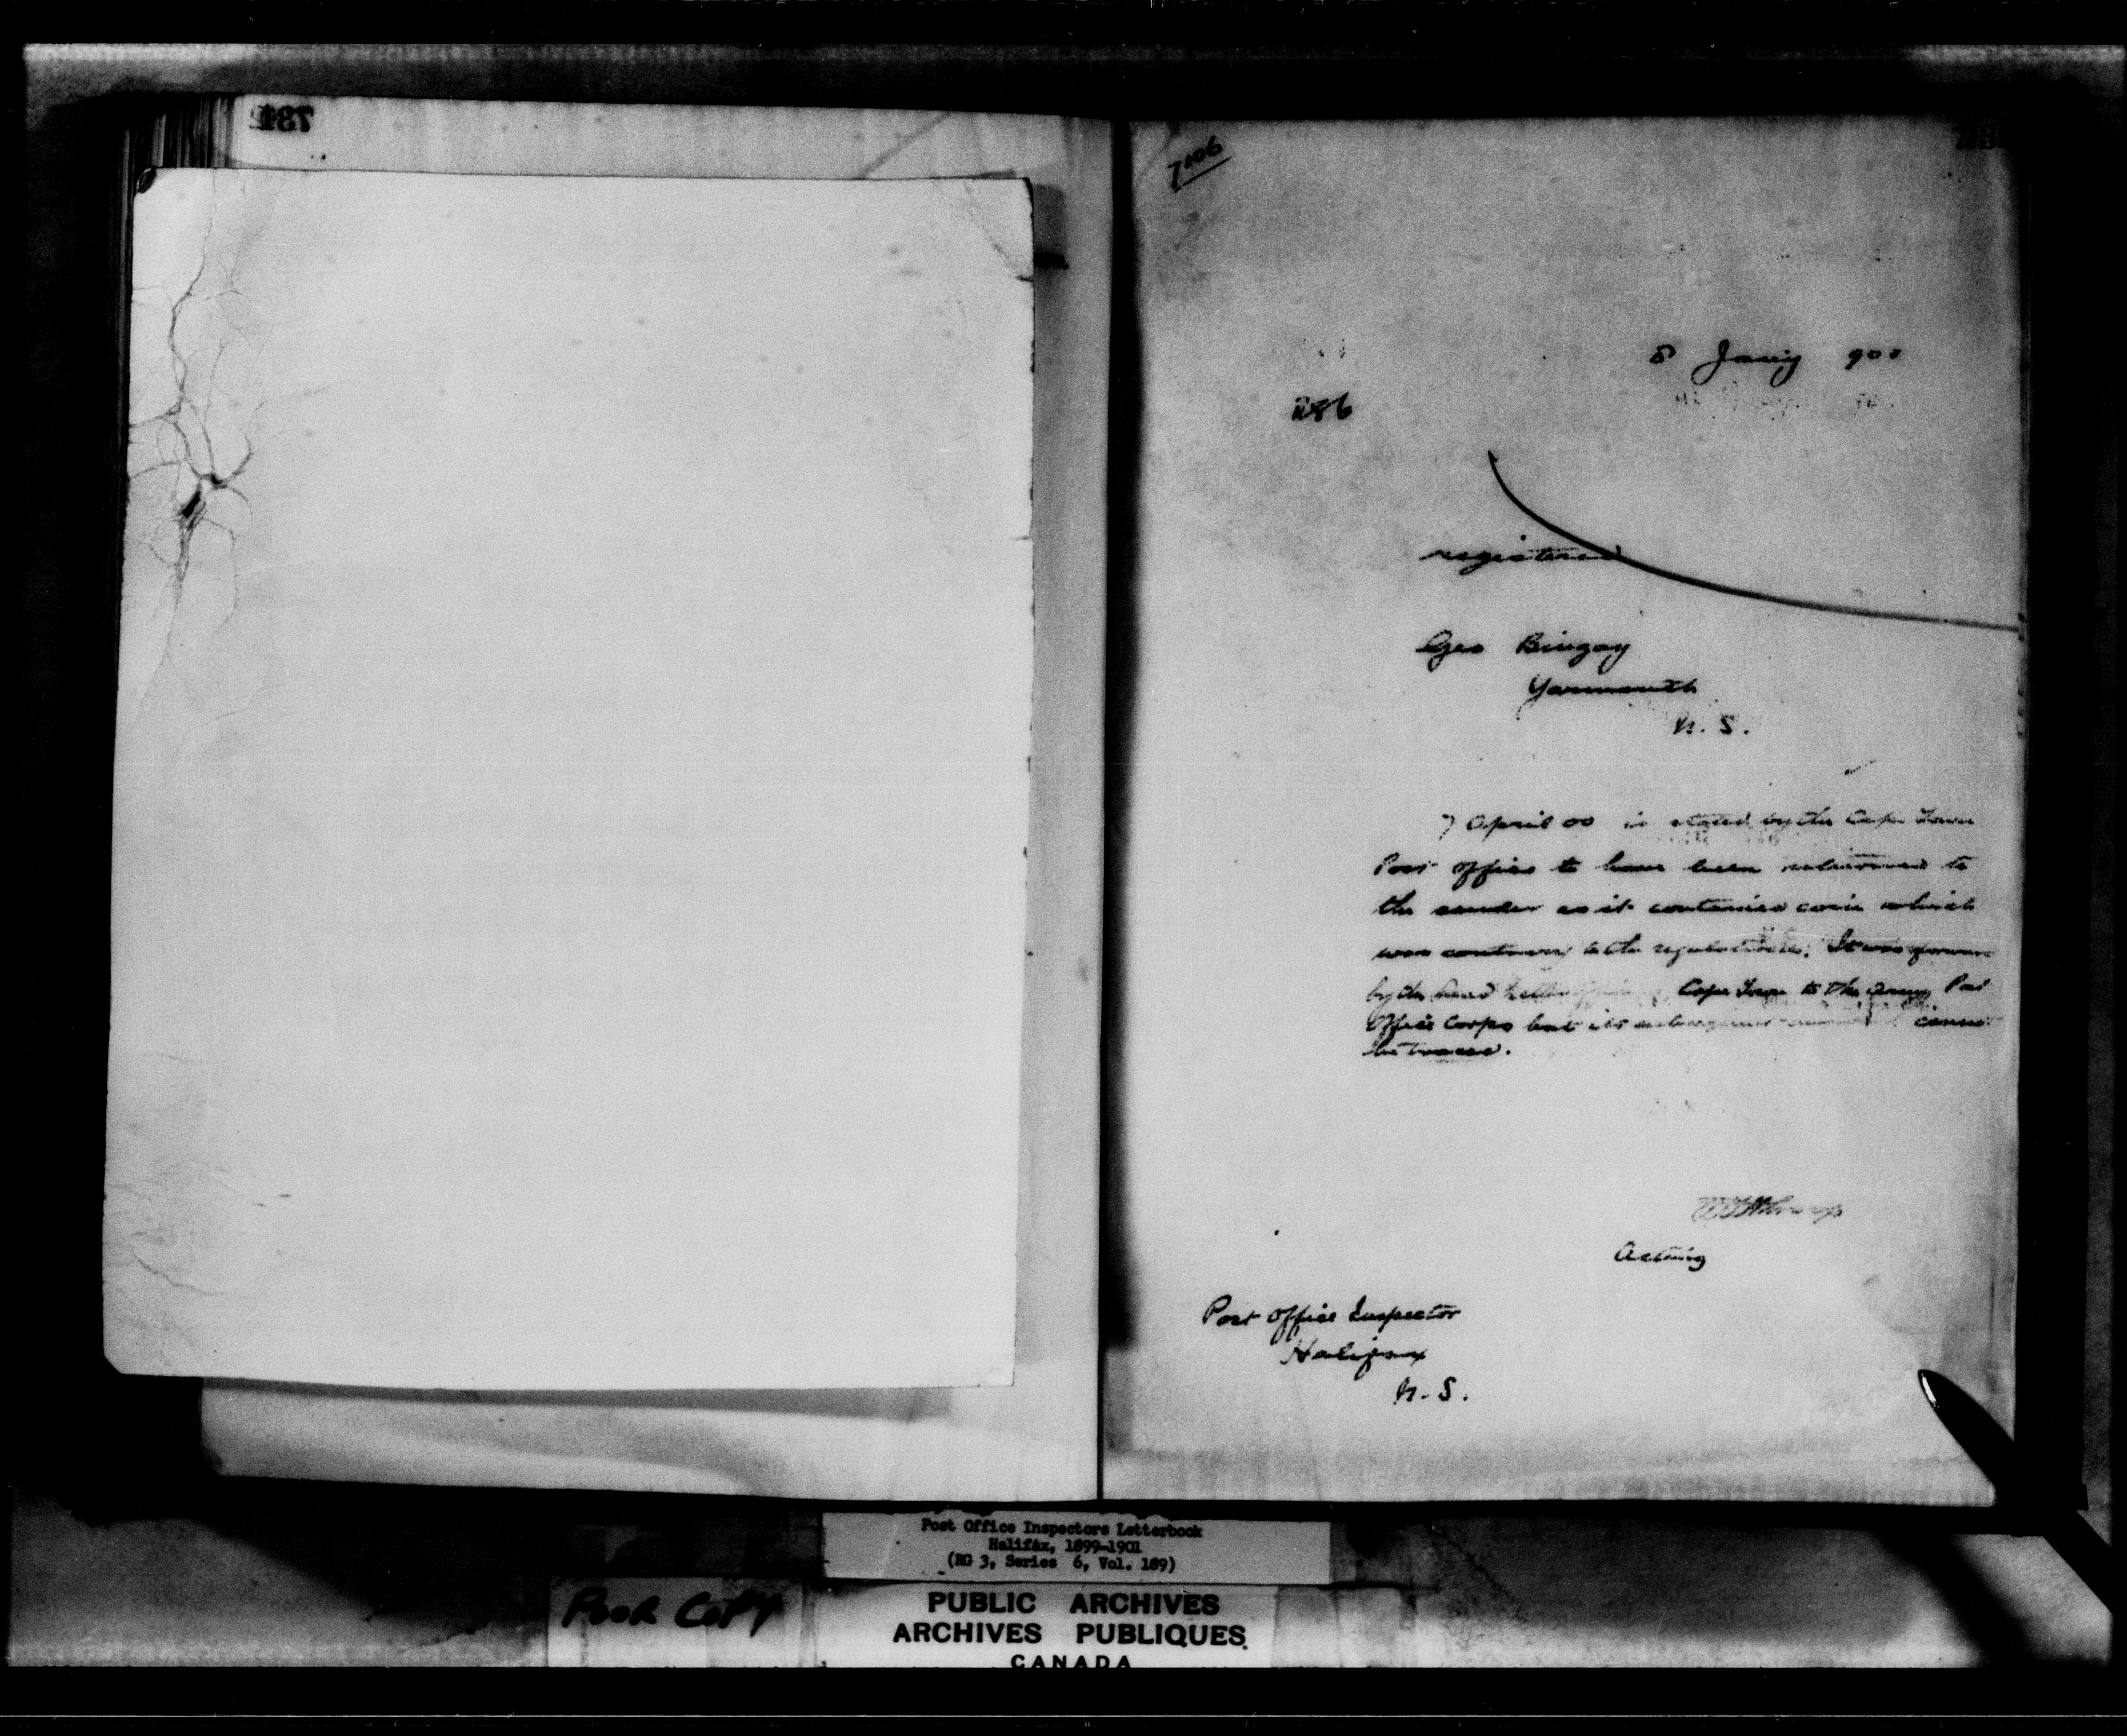 7106
8 Jany 900
286
registered
Geo Bingay
Yarmouth
N. S.
7 April 00 is stated by the Cape Town
Post Office to have been returned to
the sender as it contained coin which
was contrary to the regulations. It was forward
by the Dead Letter Office Cape Town to the Army Post
Office Corps but its subsequent cannot
be traced.
Acting
Post Office Inspector
Halifax
N. S.
Post Office Inspectors Letterbook
Halifax, 1899-1901
(RG 3, Series 6, Vol. 189)
POOR COPY
PUBLIC ARCHIVES
ARCHIVES PUBLIQUES
CANADA